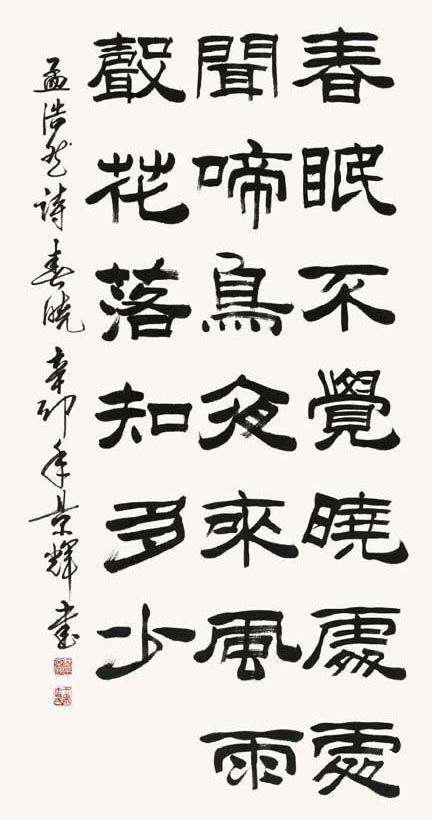 春眠不覺曉處處
聞啼鳥夜來風雨
聲花落知多少
孟浩然詩春曉辛卯年景輝書